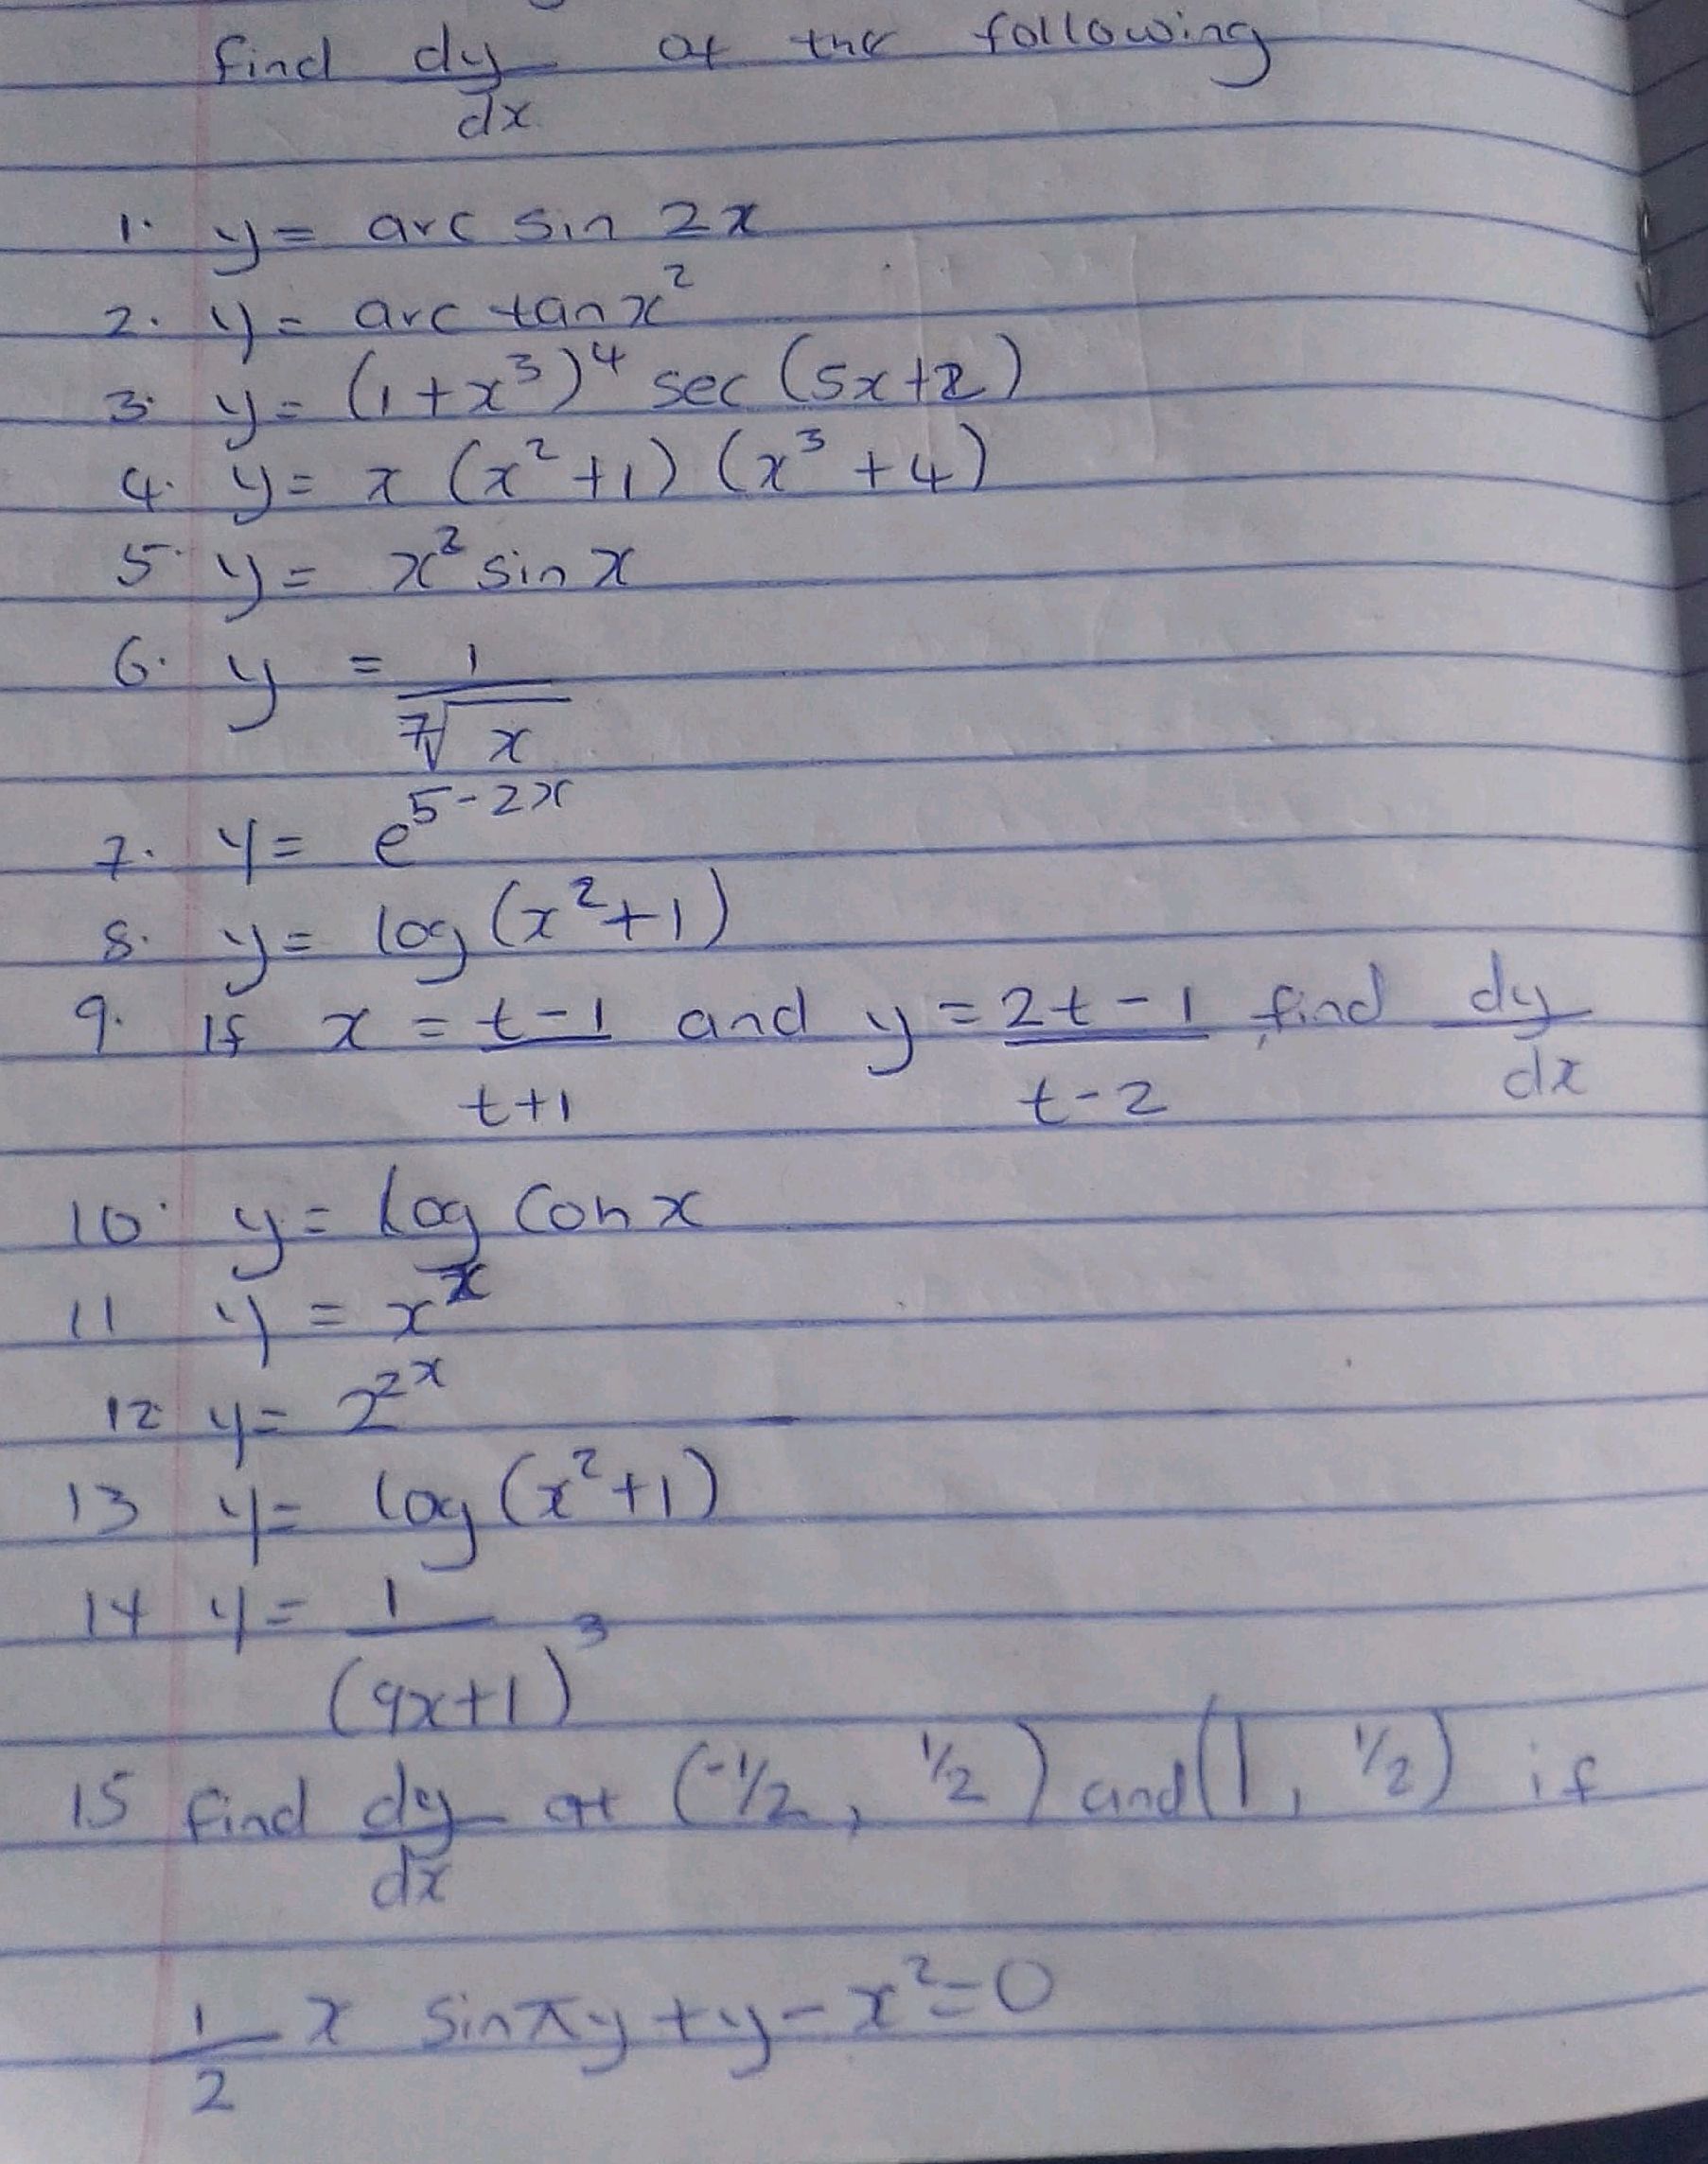 find dy/dx of the following
1. y = arc sin 2x
2. y = arc tan x²
3. y = (1+x³)⁴ sec (5x+2)
4. y = x (x²+1) (x³+4)
5. y = x² sin x
6. y = 1/⁷√x
7. y = e^(5-2x)
8. y = log (x²+1)
9. If x = (t-1)/(t+1) and y = (2t-1)/(t-2), find dy/dx
10. y = log Con x
11 y = x^x
12 y = 2^2^x
13 y = log (x²+1)
14 y = 1/(9x+1)³
15 find dy/dx at (-1/2, 1/2) and (1, 1/2) if
1/2 x sin πy + y - x² = 0